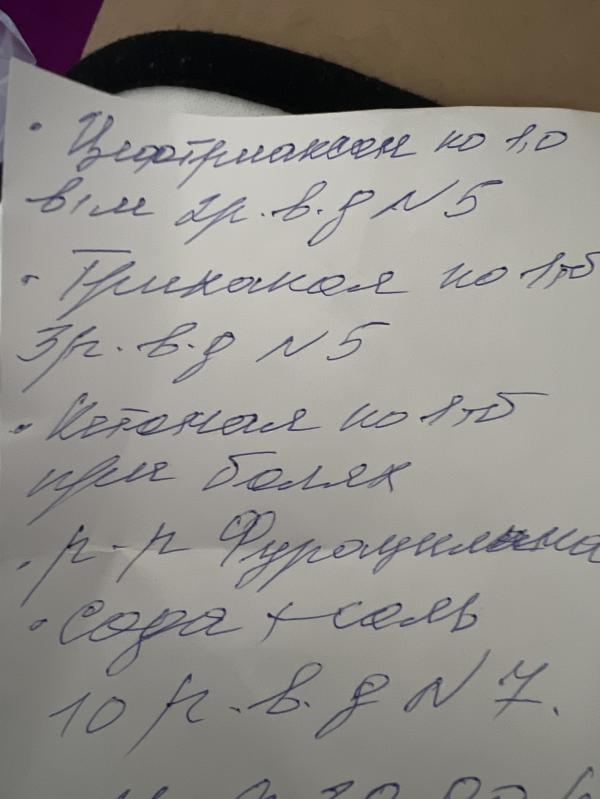 • Цефтриаксон по 1,0
в/м 2р. в. д N 5
• Трихопол по 1тб
3р. в. д N 5
• Кетонал по 1тб
при болях
• р-р Фурацилина
• Сода + соль
10 р. в. д N 7.